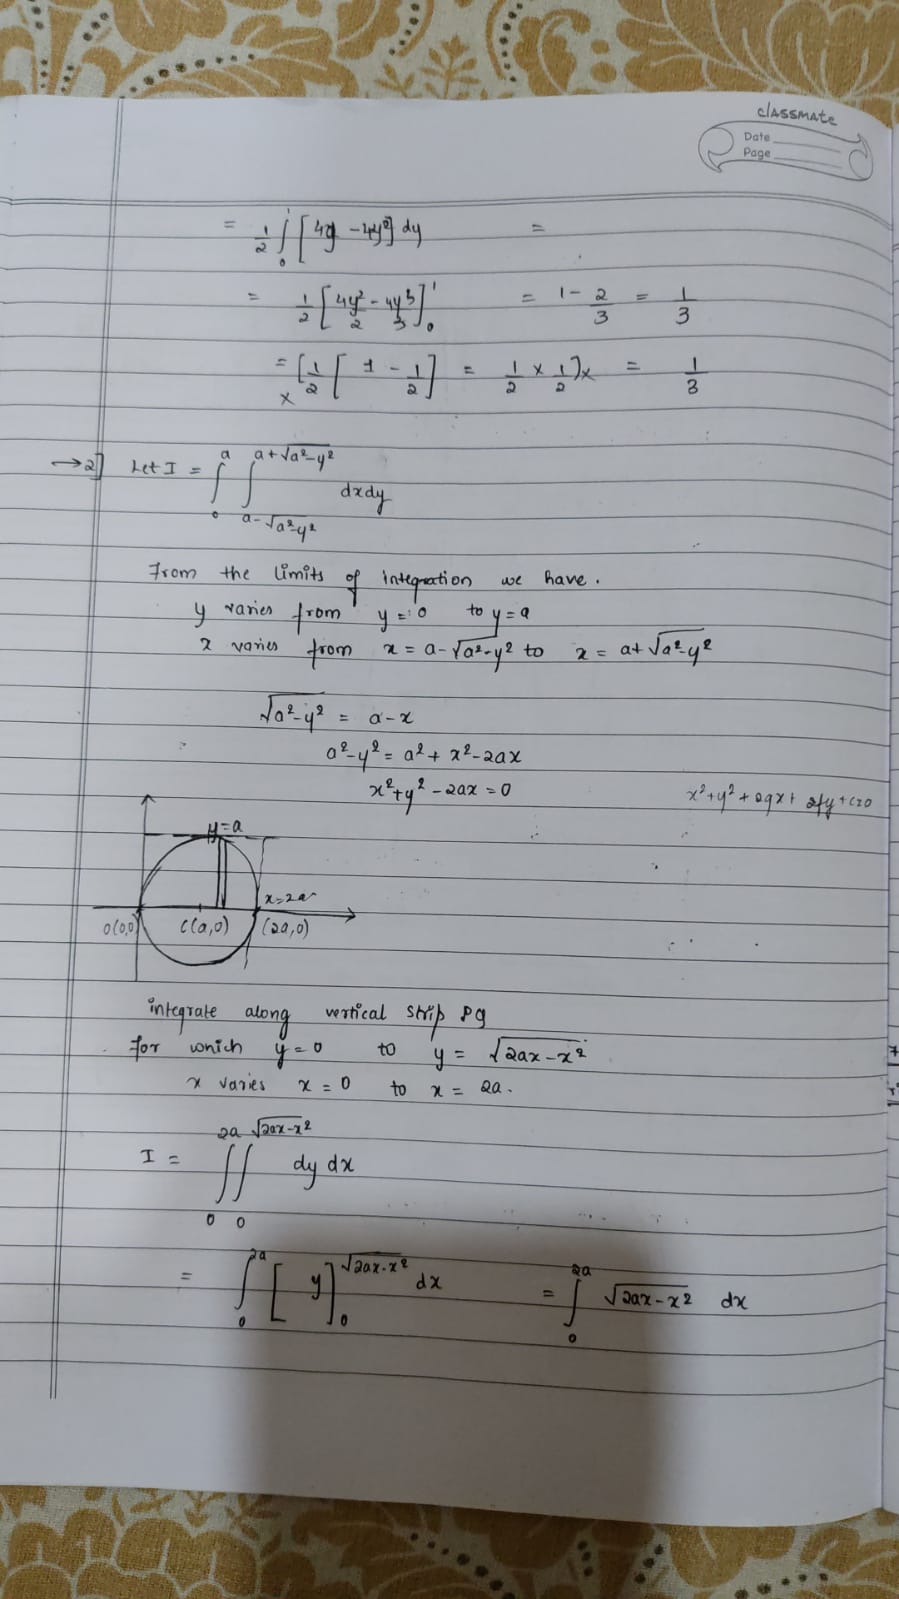 classmate
Date
Page
= 1/2 ∫₀¹ [4y - 4y²] dy =
= 1/2 [4y²/2 - 4y³/3]₀¹ = 1 - 2/3 = 1/3
= [1/2 [1 - 1/2] = 1/2 × 1/2]x = 1/3
x
→2] Let I = ∫₀ᵃ ∫_{a-√a²-y²}^{a+√a²-y²} dxdy
From the limits of integration we have.
y varies from y = 0 to y = a
x varies from x = a-√a²-y² to x = a+√a²-y²
√a²-y² = a-x
a²-y² = a² + x²-2ax
x²+y²-2ax = 0
x²+y²+2gx+2fy+c=0
y=a
x=2a
O(0,0) C(a,0) (2a,0)
integrate along vertical strip PQ
for which y=0 to y = √2ax-x²
x varies x = 0 to x = 2a.
I = ∫₀^{2a} ∫₀^{√2ax-x²} dy dx
= ∫₀^{2a} [y]₀^{√2ax-x²} dx = ∫₀^{2a} √2ax-x² dx